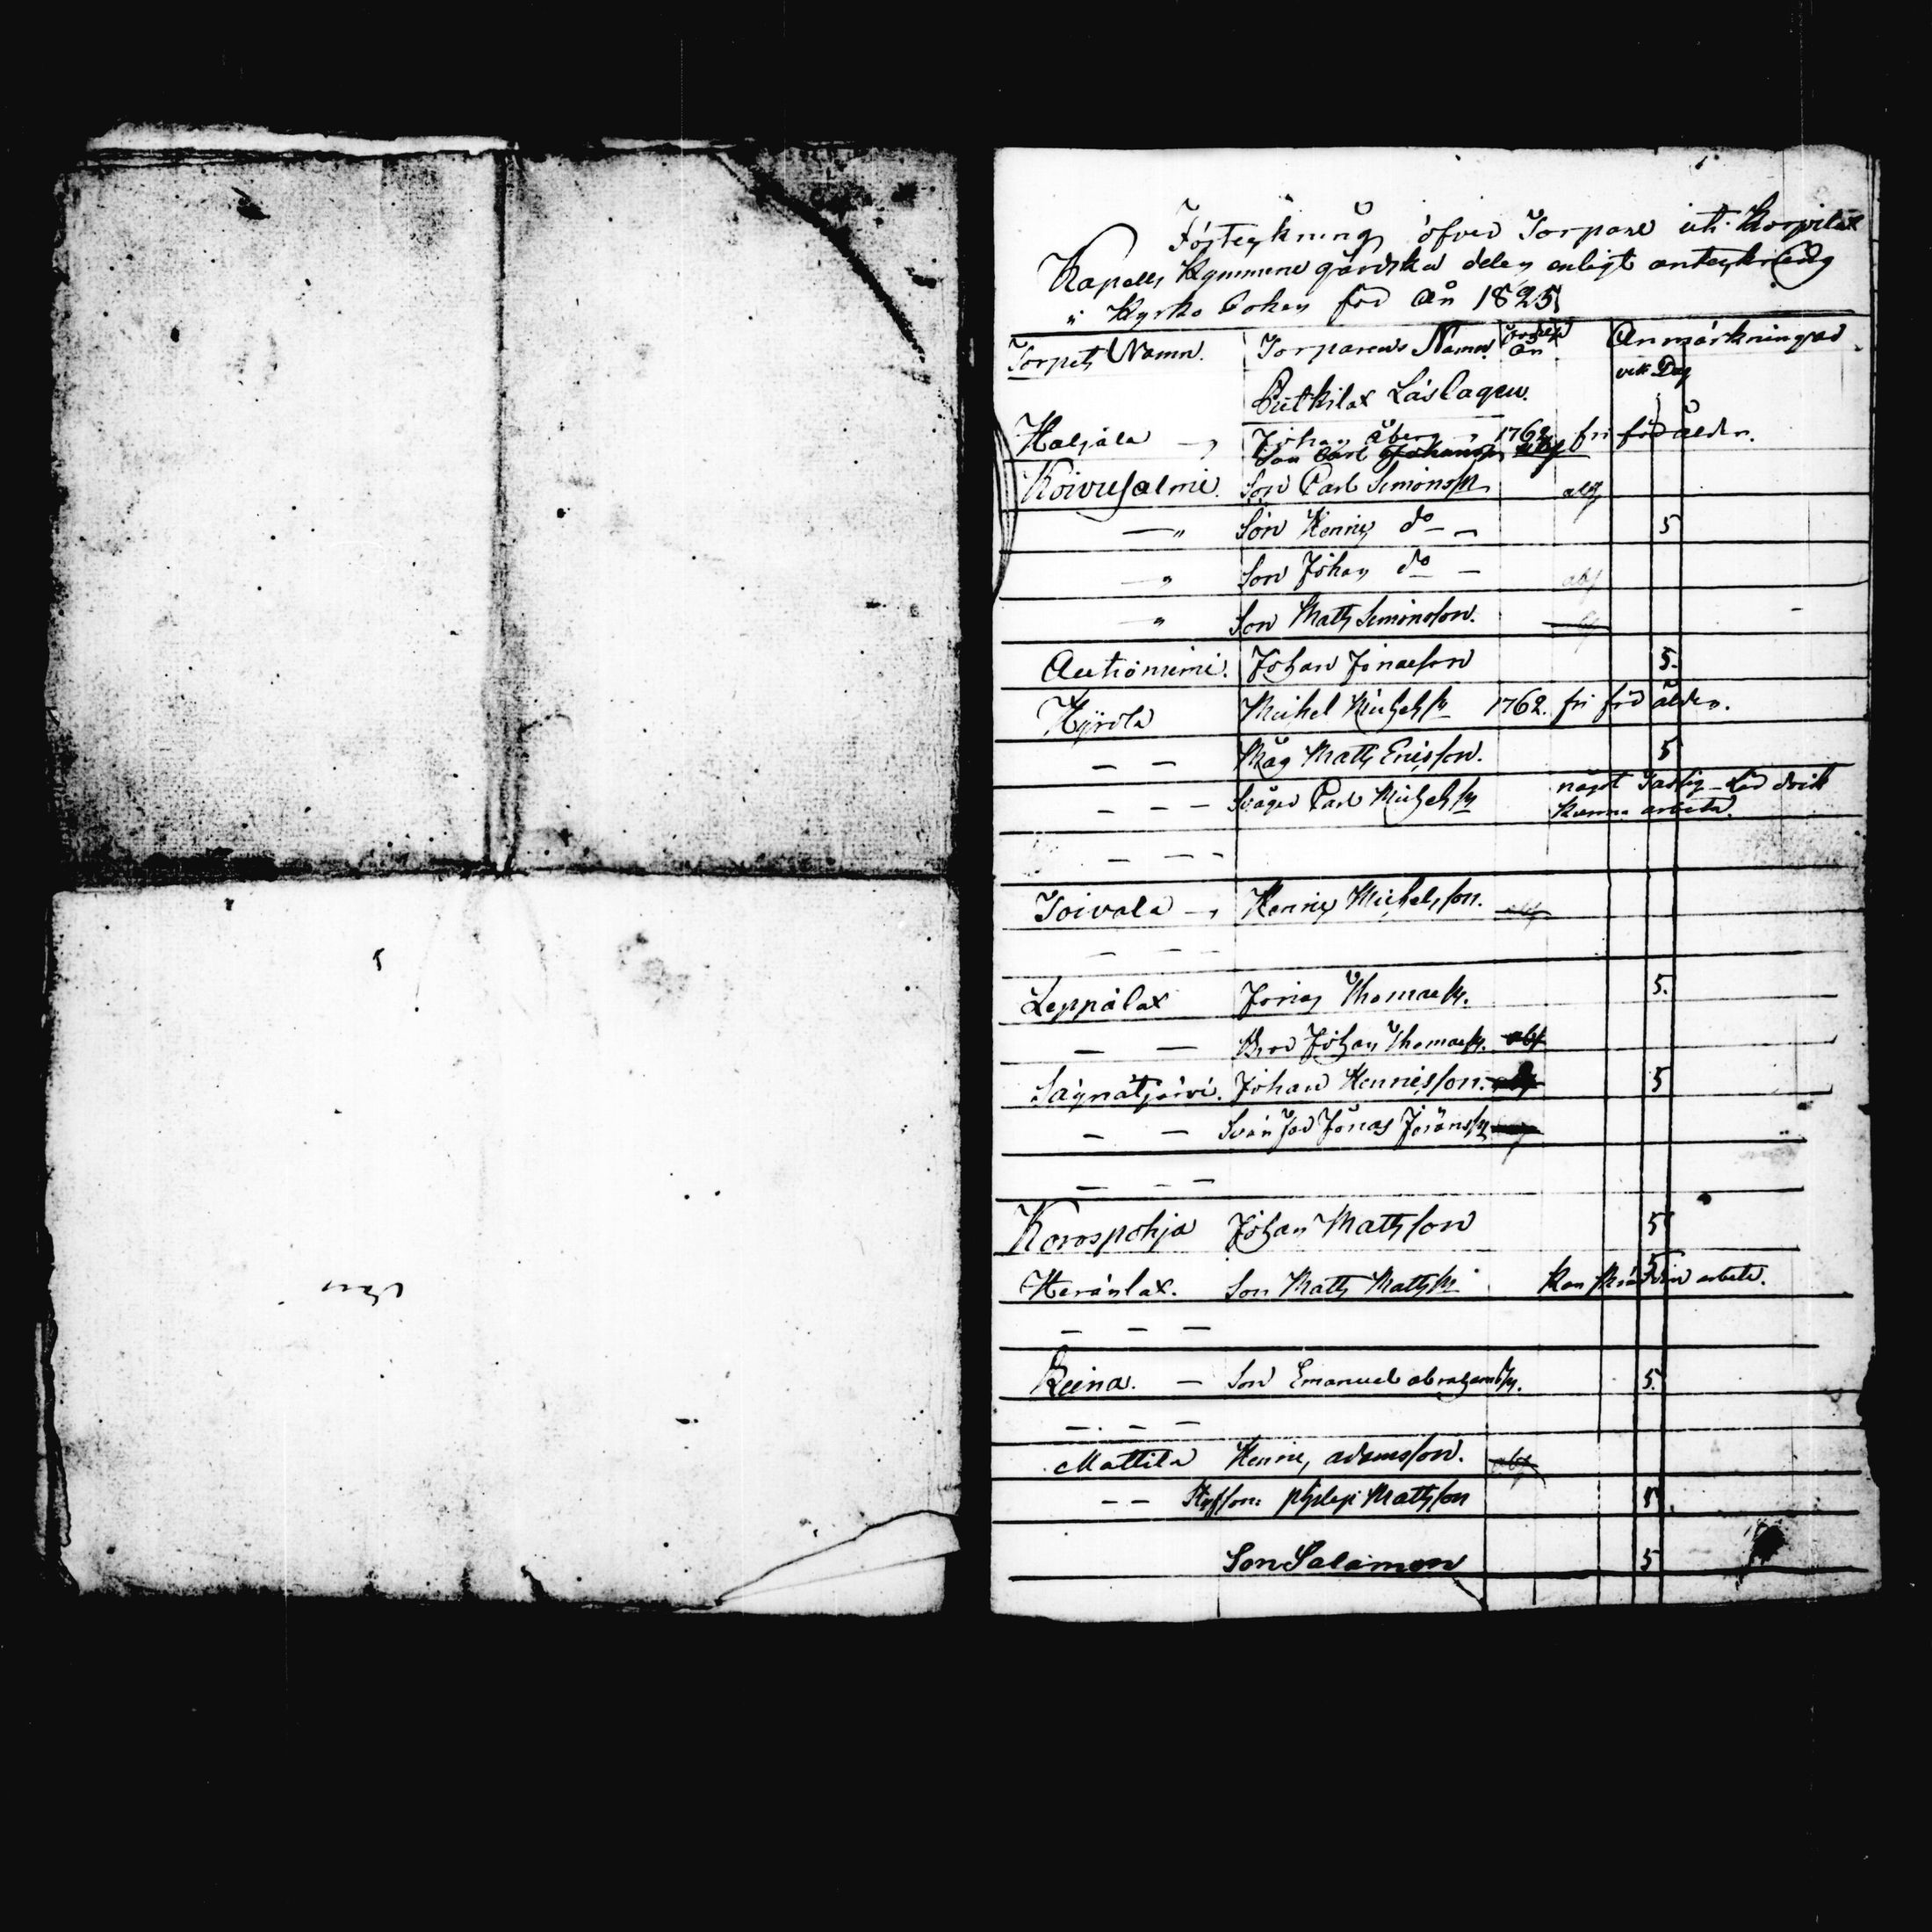 Förteykning öfver Torpare uti Korpilax
Kapells Kymmene gårdska deley enligt anteykning
i Kyrko Bokey för År 1825
Torpets Namn. Torparens Namn År Anmärkningar
vek Dag
Putkilax Läslagen.
Haljala Johan Åberg 1762 fri för ålder.
Son Carl Johanss
Koivusalmi. Son Carl Simonss abs
" Son Henric do 5
" Son Johan do abs
" Son Matts Simonsson.
Autioniemi. Johan Jönasson 5.
Hyrölä Michel Michelss 1762. fri för ålder.
— — Måg Matts Ericsson. 5
— — — Svåger Carl Michelss något
arbeta.
— — —
Toivala Henric Michelsson. abs
— — —
Leppälax Jonas Thomass. 5.
— — Bror Johan Thomass. abs
Säynätjärvi. Johan Henricsson. abs 5
— — Svärfar Jonas Jöranss
— — —
Korospohja Johan Mattsson 5
5
Heräislax. Son Matts Mattss kan arbete.
— — —
Reina. — Son Emanuel abrahamss. 5.
— — —
Mattila Henric adamsson. abs
— — Styfson: Mattsson
Son Salamon 5